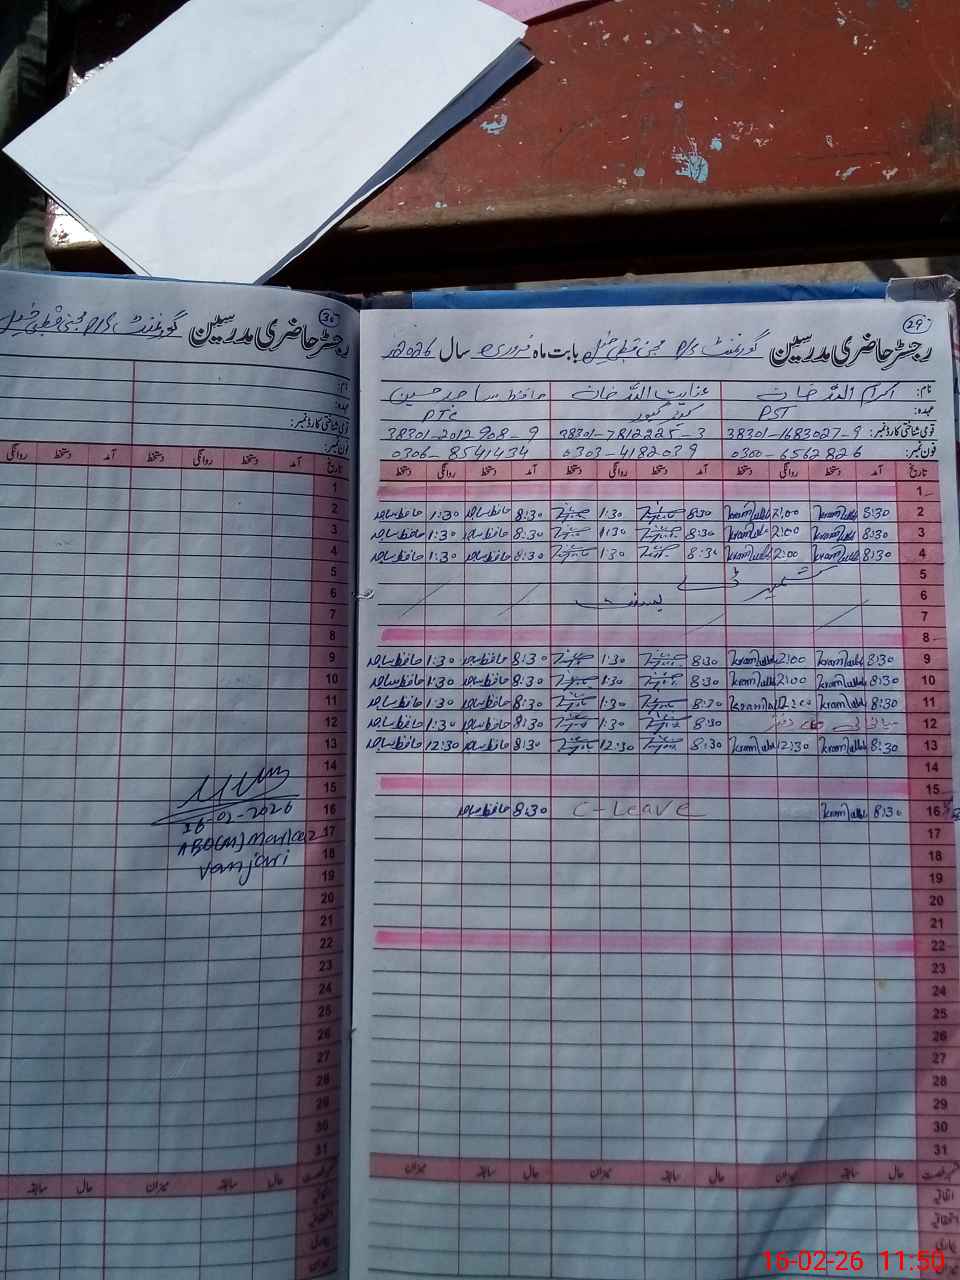 29
رجسٹر حاضری مدرسین گورنمنٹ P/S بابت ماہ فروری سال 2026ء
نام: اکرام اللہ خان عنایت اللہ خان حافظ ساجد حسین
عہدہ: PST PTC
قومی شناختی کارڈ نمبر: 38301-1683027-9 38301-7812225-3 38301-2012908-9
فون نمبر: 0300-6562826 0303-4182039 0306-8541434
تاریخ آمد دستخط روانگی دستخط آمد دستخط روانگی دستخط آمد دستخط روانگی دستخط
1
2 8:30 Ikramullah 2:00 Ikramullah 8:30 1:30 8:30 حافظ ساجد 1:30 حافظ ساجد
3 8:30 Ikramullah 2:00 Ikramullah 8:30 1:30 8:30 حافظ ساجد 1:30 حافظ ساجد
4 8:30 Ikramullah 2:00 Ikramullah 8:30 1:30 8:30 حافظ ساجد 1:30 حافظ ساجد
5 کشمیر ڈے
6 بسنت
7
8
9 8:30 Ikramullah 2:00 Ikramullah 8:30 1:30 8:30 حافظ ساجد 1:30 حافظ ساجد
10 8:30 Ikramullah 2:00 Ikramullah 8:30 1:30 8:30 حافظ ساجد 1:30 حافظ ساجد
11 8:30 Ikramullah 2:00 Ikramullah 8:30 1:30 8:30 حافظ ساجد 1:30 حافظ ساجد
12 8:30 1:30 8:30 حافظ ساجد 1:30 حافظ ساجد
13 8:30 Ikramullah 12:30 Ikramullah 8:30 12:30 8:30 حافظ ساجد 12:30 حافظ ساجد
14
15
16 8:30 Ikramullah C-Leave 8:30 حافظ ساجد
17
18
19
20
21
22
23
24
25
26
27
28
29
30
31
حال سابقہ میزان حال سابقہ میزان حال سابقہ میزان
اتفاقیہ
استحقاقیہ
بیماری
30
رجسٹر حاضری مدرسین گورنمنٹ P/S
نام:
عہدہ:
قومی شناختی کارڈ نمبر:
فون نمبر:
تاریخ آمد دستخط روانگی دستخط آمد دستخط روانگی
1
2
3
4
5
6
7
8
9
10
11
12
13
14
15
16
16-02-2026
17
AEO(M) Markaz
18
Vanjari
19
20
21
22
23
24
25
26
27
28
29
30
31
حال سابقہ میزان حال سابقہ
اتفاقیہ
استحقاقیہ
بیماری
میزان
16-02-26 11:50